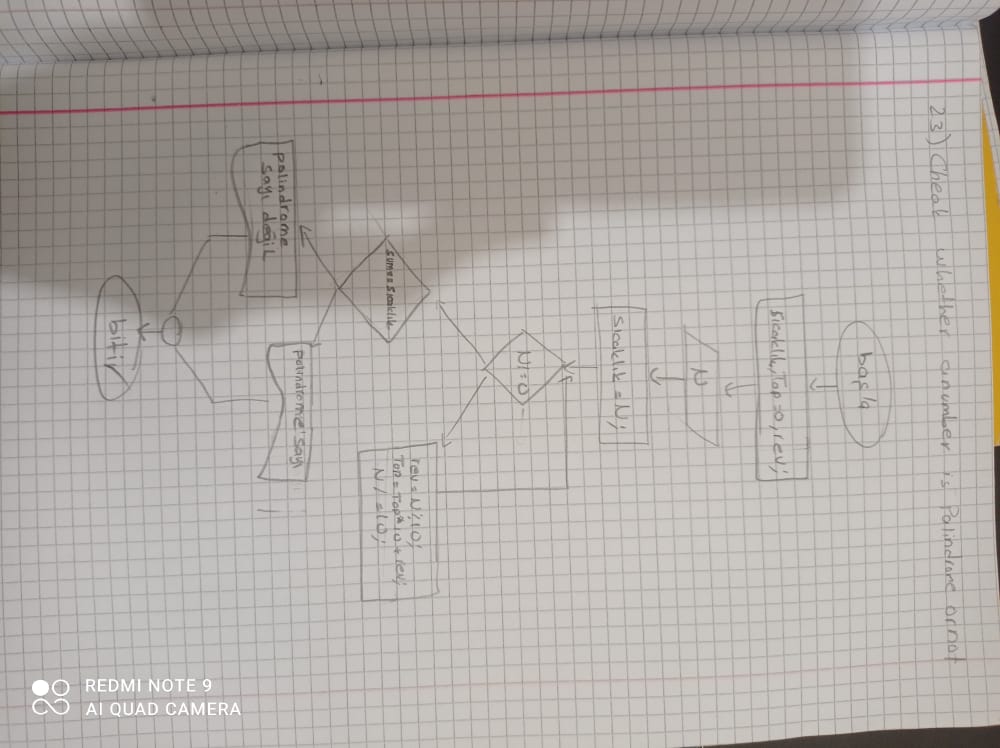 23) Cheak whether anumber is Palindrome or not
başla
Sıcaklık, Top=0, rev;
N
Sıcaklık = N;
N!=0
rev = N%10;
Top = Top*10+rev;
N/=10;
sum==sıcaklık
palindrome
sayı değil
palindrome sayı
bitir
REDMI NOTE 9
AI QUAD CAMERA